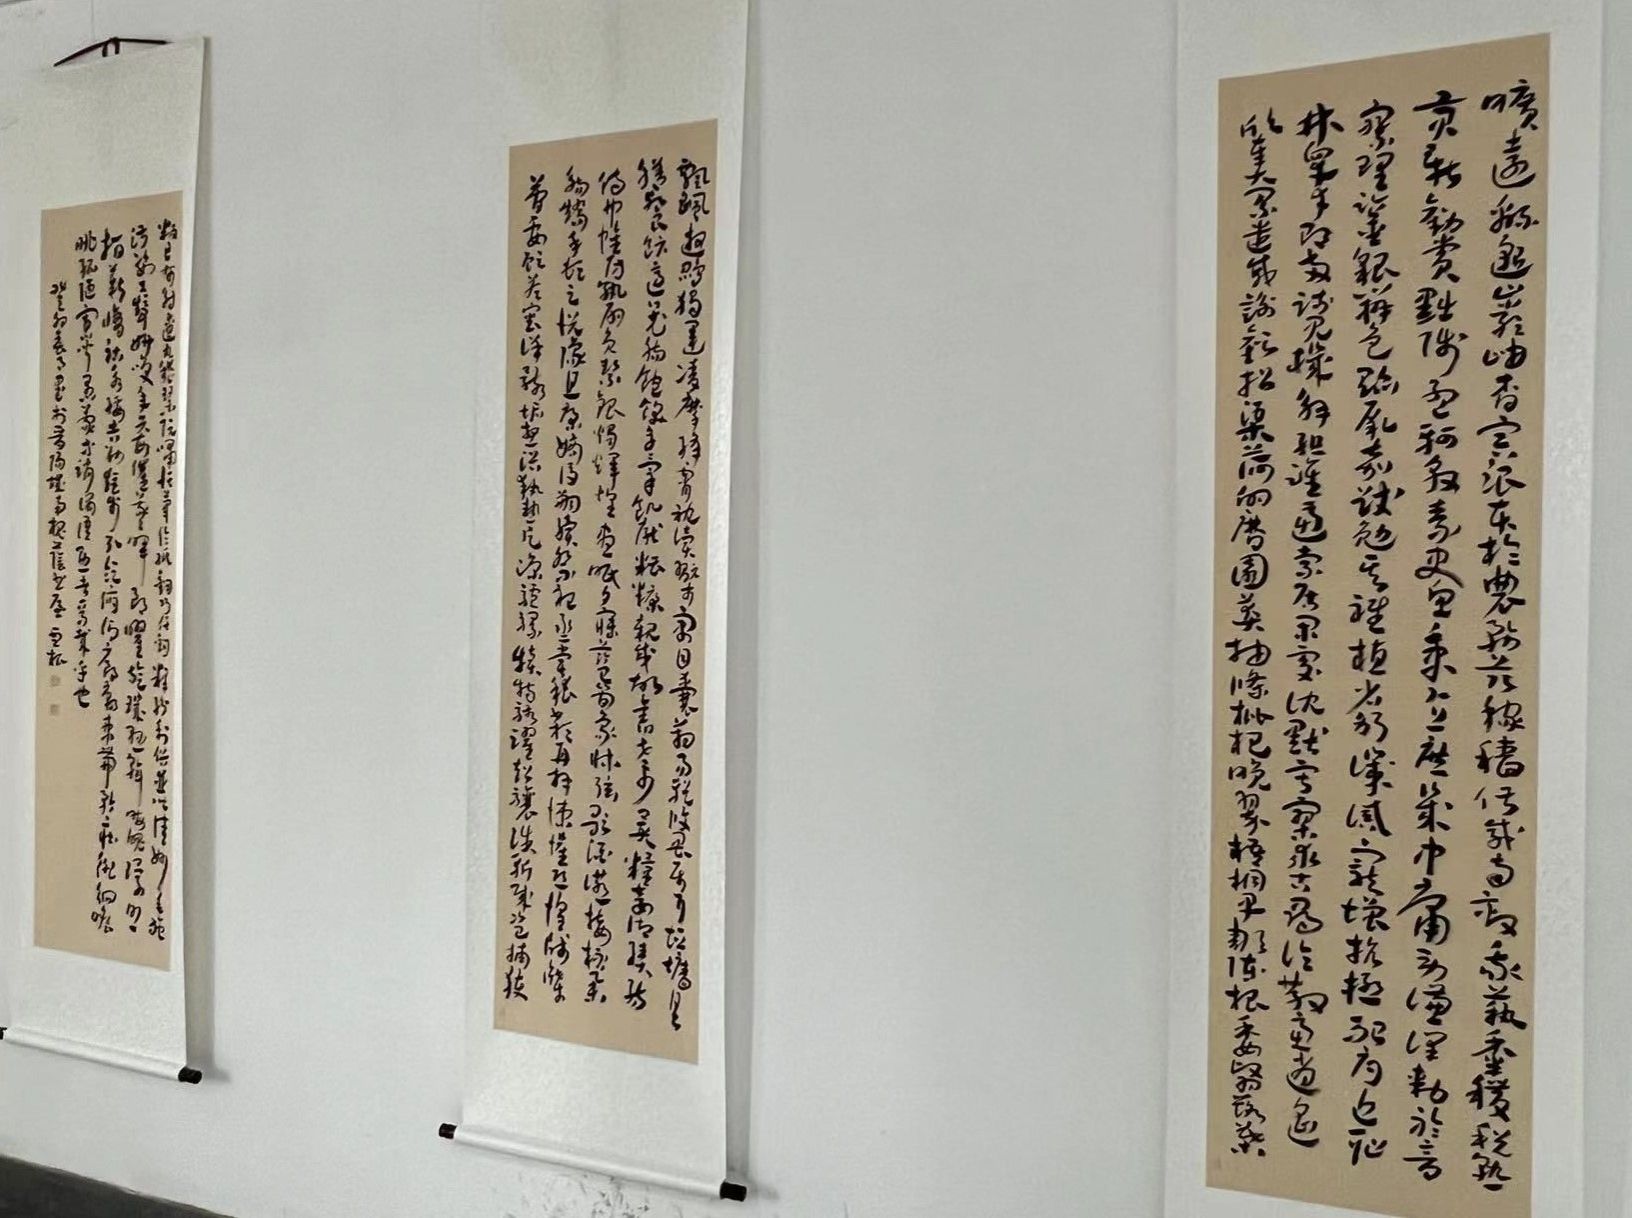 曠遠緜邈巖岫杳冥治本於農務茲稼穡俶載南畝我藝黍稷稅熟
貢新勸賞黜陟孟軻敦素史魚秉直庶幾中庸勞謙謹敕聆音
察理鑑貌辨色貽厥嘉猷勉其祗植省躬譏誡寵增抗極殆辱近恥
林皋幸即兩疏見機解組誰逼索居閒處沉默寂寥求古尋論散慮逍遙
欣奏累遣慼謝歡招渠荷的歷園莽抽條枇杷晚翠梧桐早凋陳根委翳落葉
飄颻遊鵾獨運凌摩絳霄耽讀翫市寓目囊箱易輶攸畏屬耳垣牆具
膳飧飯適口充腸飽飫烹宰飢厭糟糠親戚故舊老少異糧妾御績紡
侍巾帷房紈扇圓潔銀燭煒煌晝眠夕寐藍筍象床弦歌酒讌接杯舉
觴矯手頓足悅豫且康嫡後嗣續祭祀烝嘗稽顙再拜悚懼恐惶牋牒
簡要顧答審詳骸垢想浴執熱願涼驢騾犢特駭躍超驤誅斬賊盜捕獲
叛亡布射遼丸嵇琴阮嘯恬筆倫紙鈞巧任釣釋紛利俗並皆佳妙毛施
淑姿工顰妍笑年矢每催曦暉朗曜璇璣懸斡晦魄環照
指薪修祜永綏吉劭矩步引領俯仰廊廟束帶矜莊徘徊瞻
眺孤陋寡聞愚蒙等誚謂語助者焉哉乎也
癸卯春月 雪松